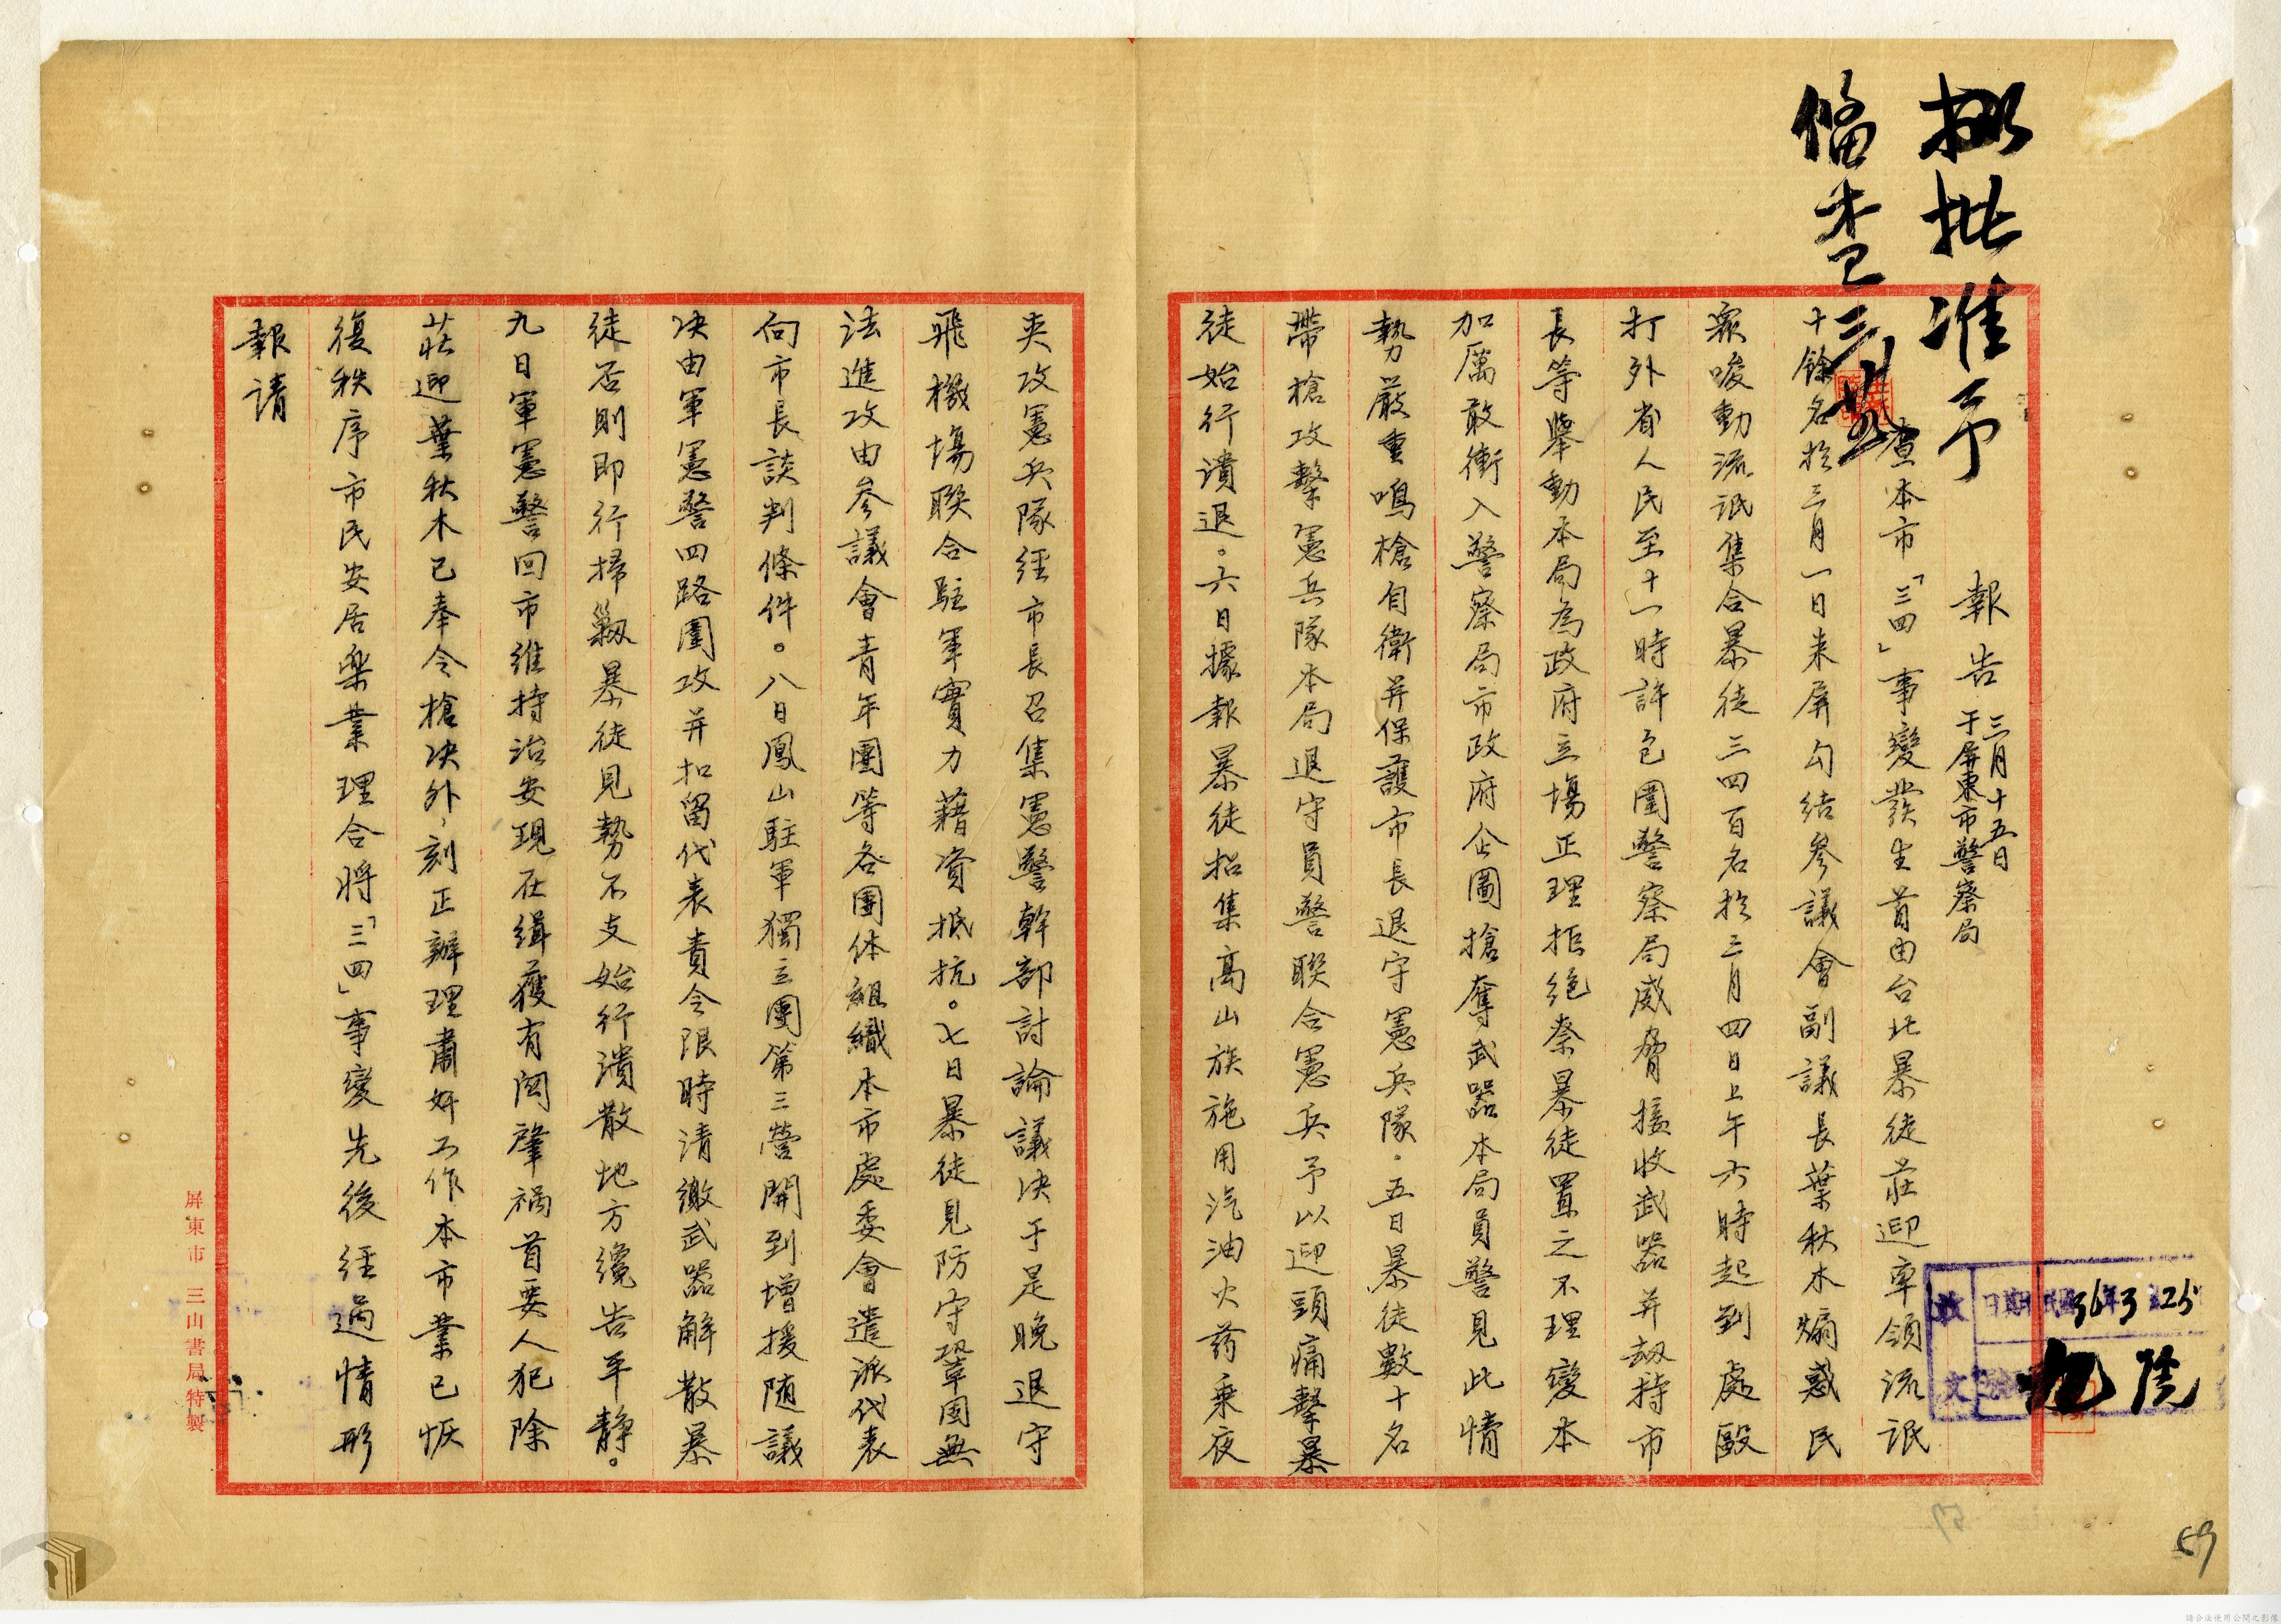 擬批准予
備查
報告 三月十五日
于屏東市警察局
查本市「三四」事變發生首由台北暴徒莊迎率領流氓
十餘名於三月一日来屏勾结參議會副議長葉秋木煽惑民
眾唆動流氓集合暴徒三四百名於三月四日上午六時起到處毆
打外省人民至十一時許包圍警察局威脅接收武器并劫持市
長等舉動本局為政府立場正理拒絶奈暴徒置之不理變本
加厲敢衝入警察局市政府企圖搶奪武器本局員警見此情
勢嚴重鳴槍自衛并保護市長退守憲兵隊。五日暴徒數十名
帶槍攻擊憲兵隊本局退守員警聯合憲兵予以迎頭痛擊暴
徒始行潰退。六日據報暴徒招集高山族施用汽油火药乘夜
夾攻憲兵隊经市長召集憲警幹部討論議決于是晚退守
飛機場聯合駐軍實力藉資抵抗。七日暴徒見防守鞏固無
法進攻由參議會青年團等各團体組織本市處委會遣派代表
向市長談判條件。八日鳳山駐軍獨立團第三營開到增援随議
决由軍憲警四路圍攻并扣留代表責令限時清繳武器解散暴
徒否則即行掃剿暴徒見勢不支始行潰散地方纔告平靜。
九日軍憲警回市維持治安現在缉獲有関肇禍首要人犯除
莊迎葉秋木已奉令槍决外，刻正辦理肅奸工作本市業已恢
復秩序市民安居樂業理合將「三四」事變先後经過情形
報請
屏東市 三山書局特製
收文
日期
36 3 25
59
請合法使用公開之影像